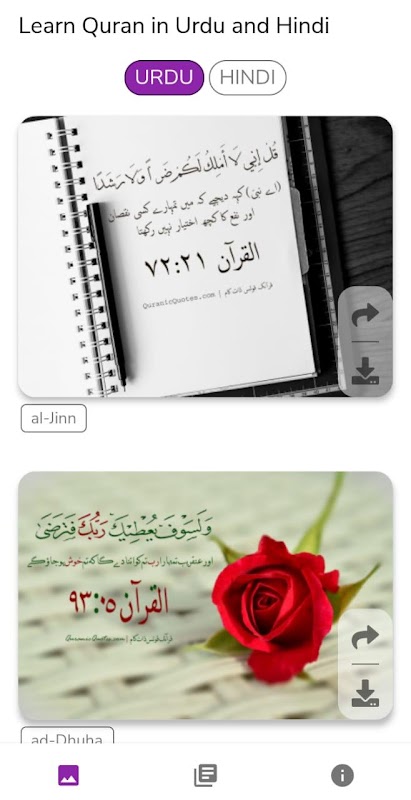 Learn Quran in Urdu and Hindi
URDU
HINDI
قُل اِنِّي لَا اَملِكُ لَكُم ضَرًّا وَّلَا رَشَدًا
(اے نبیؐ) کہہ دیجیے کہ میں تمہارے کسی نقصان
اور نفع کا کچھ اختیار نہیں رکھتا
القرآن ۷۲:۲۱
QuranicQuotes.com | قرآنک قوٹس ڈاٹ کام
al-Jinn
وَلَسَوفَ يُعطِيكَ رَبُّكَ فَتَرضَىٰ
اور عنقریب تمہارا رب تم کو اتنا دے گا کہ تم خوش ہو جاؤ گے
القرآن ۹۳:۰۵
QuranicQuotes.com | قرآنک قوٹس ڈاٹ کام
ad-Dhuha